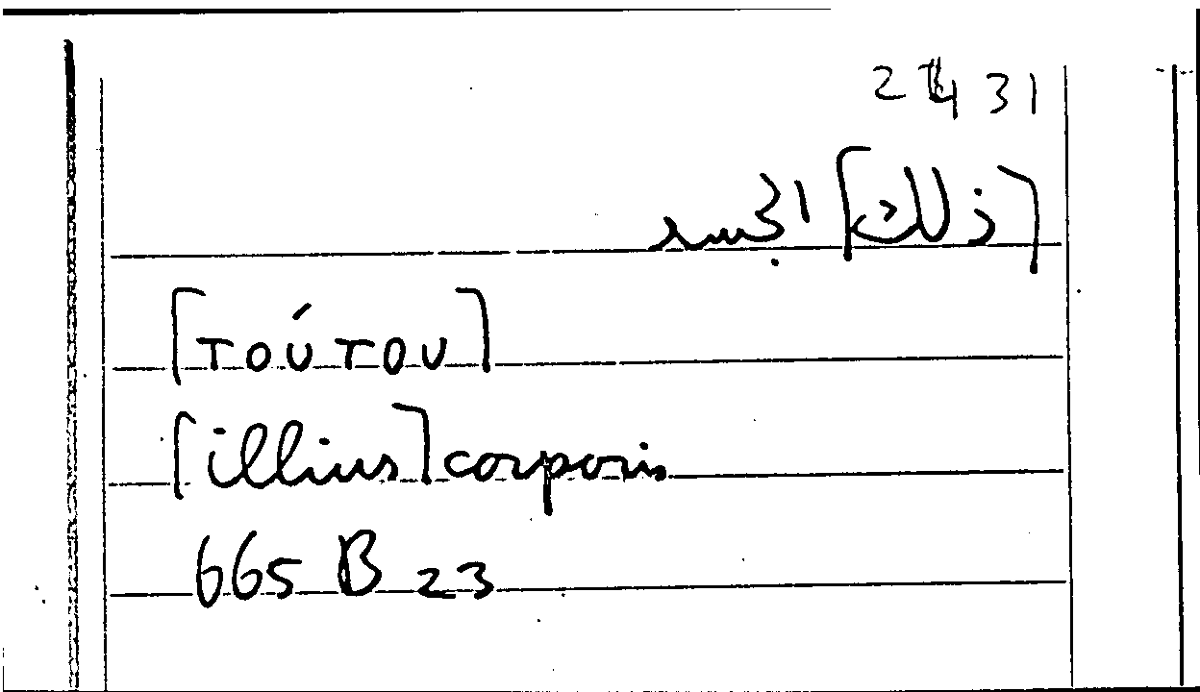 2 4 31
[ذلك] الجسم
[τούτου]
[illius] corporis
665 B 23